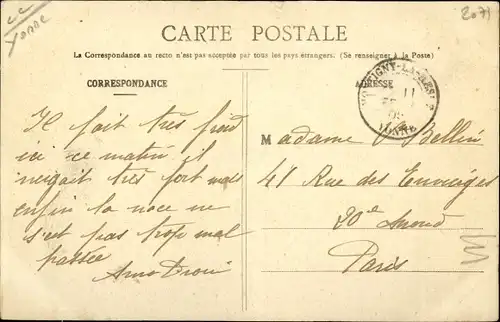 Yonne
2071
CARTE POSTALE
La Correspondance au recto n'est pas acceptée par tous les pays étrangers. (Se renseigner à la Poste)
CORRESPONDANCE
ADRESSE
YONNE
Il fait très froid
ici ce matin il
neigeait très fort mais
enfin la noce ne
s'est pas trop mal
passée
Madame Bellin
41 Rue des Envierges
20e Arrond
Paris